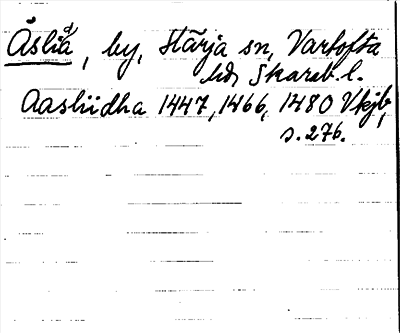 Åslida, by, Härja sn, Vartofta
hd, Skarab. l.
Aasliidha 1447, 1466, 1480 Vkjb,
s. 276.